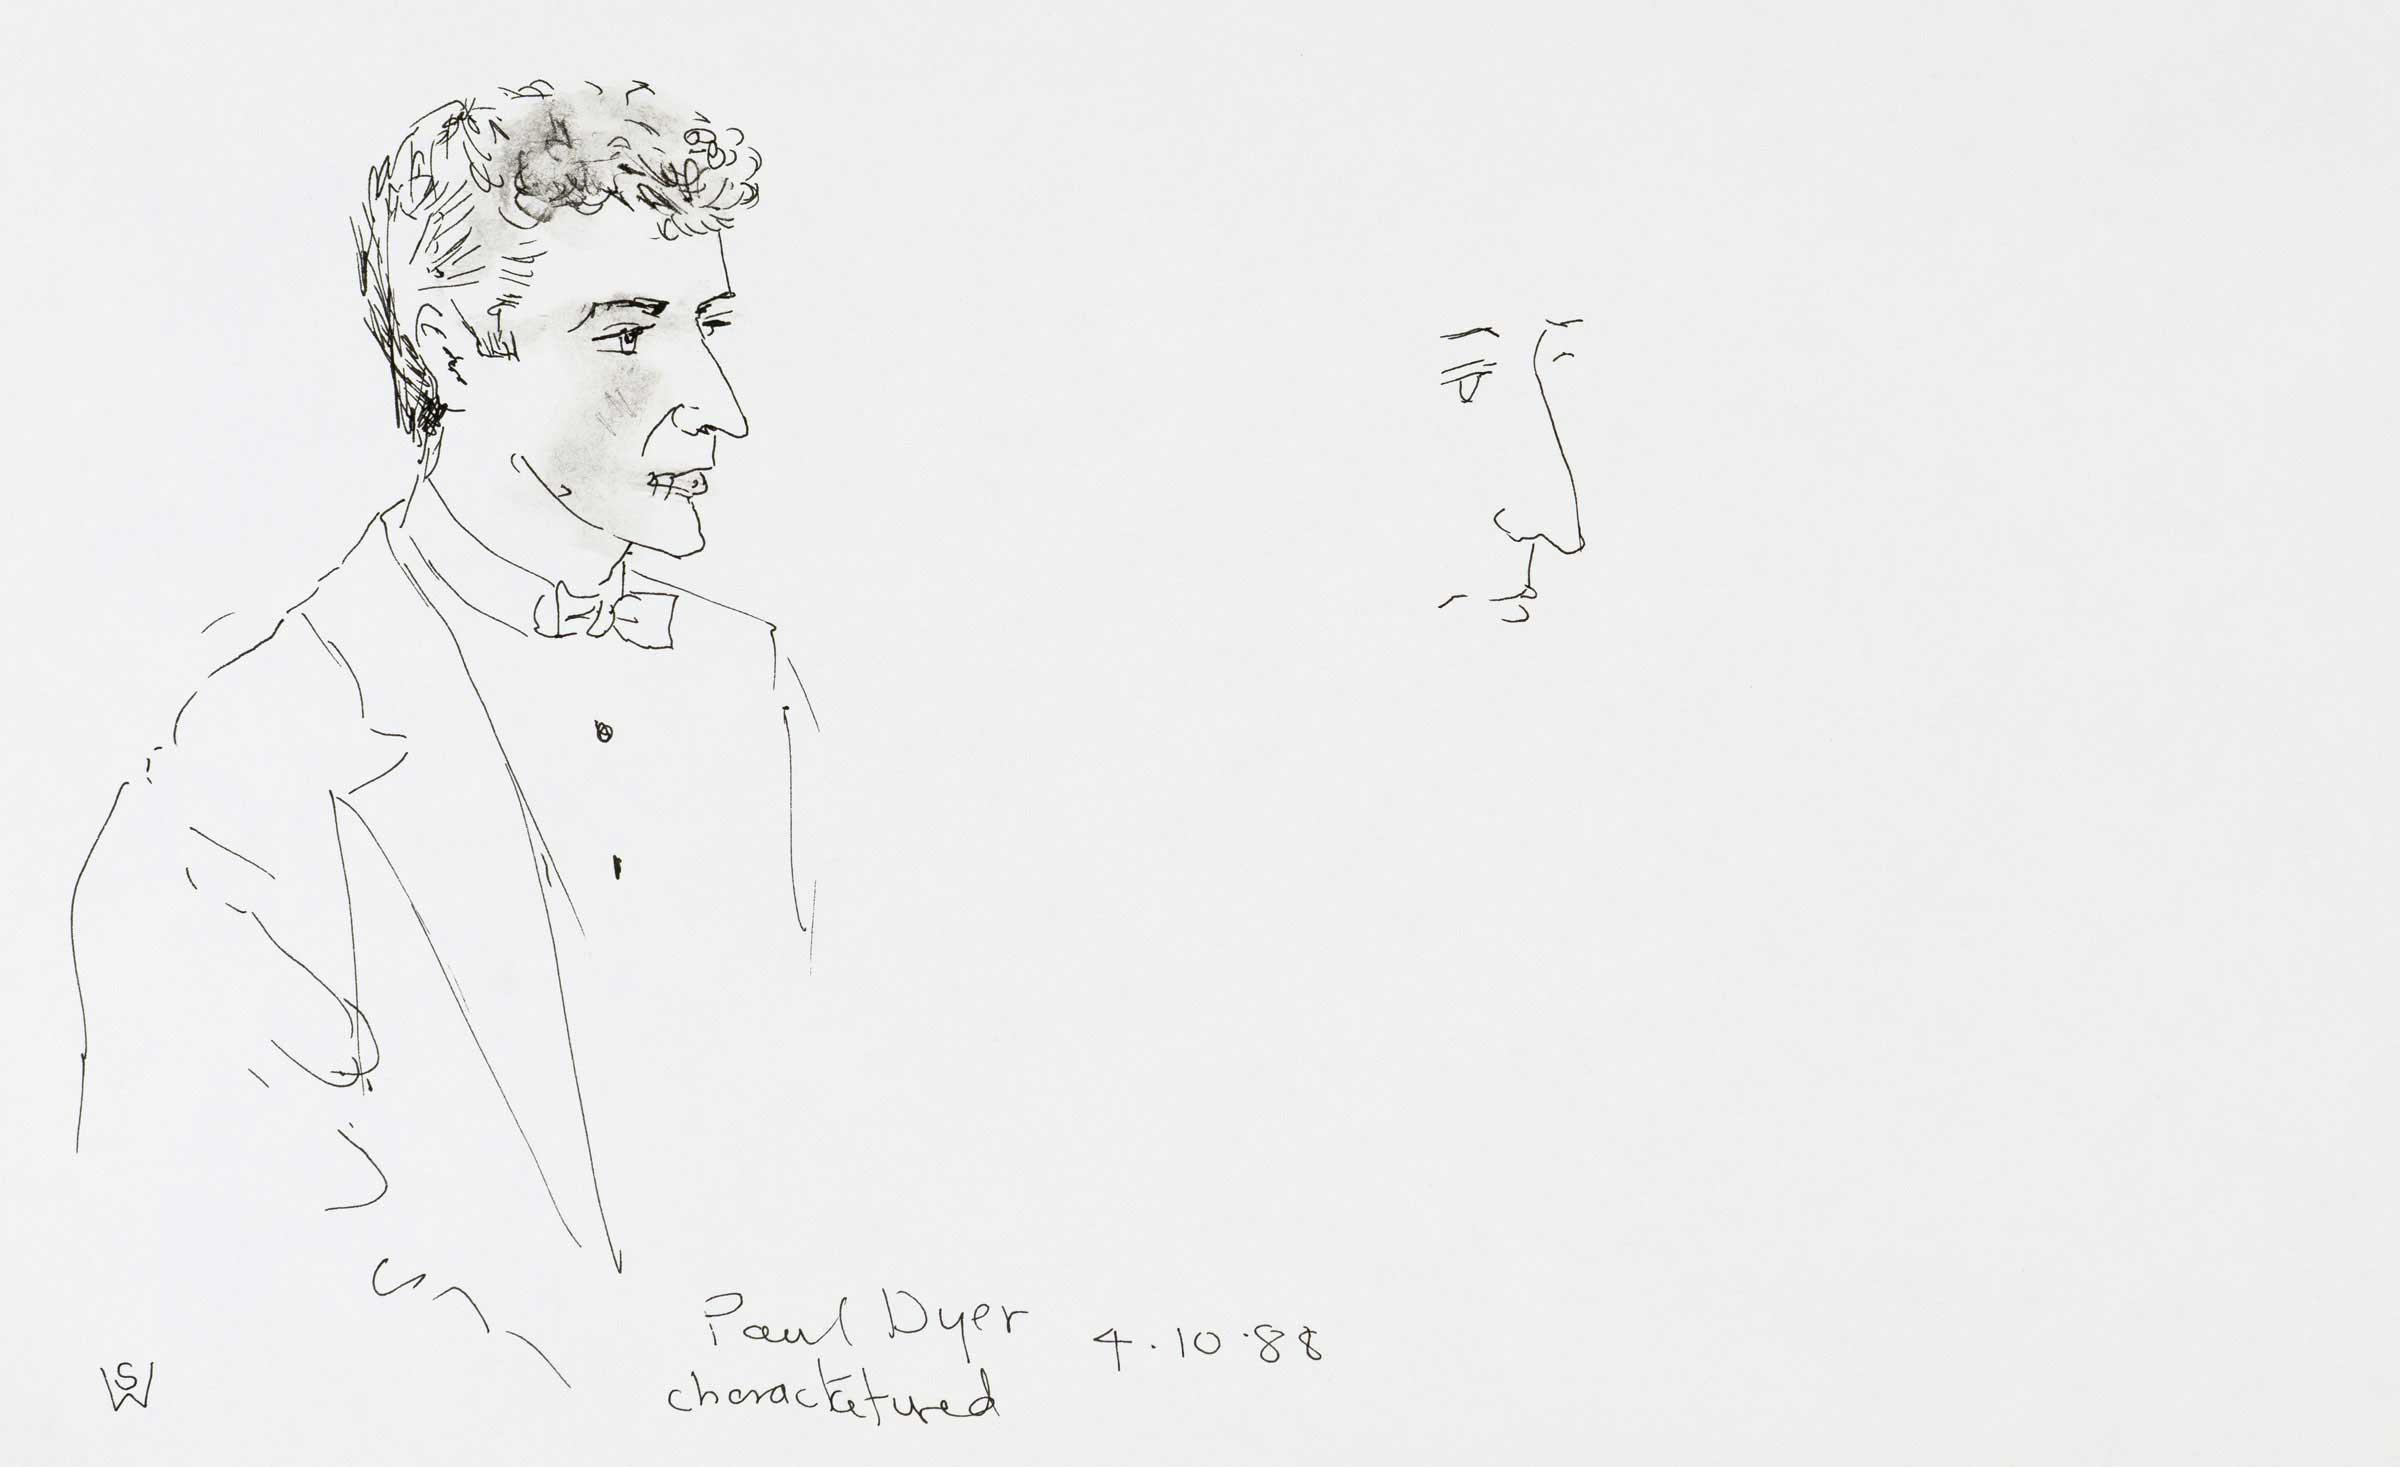 Paul Dyer 4.10.88
charactetured
SW